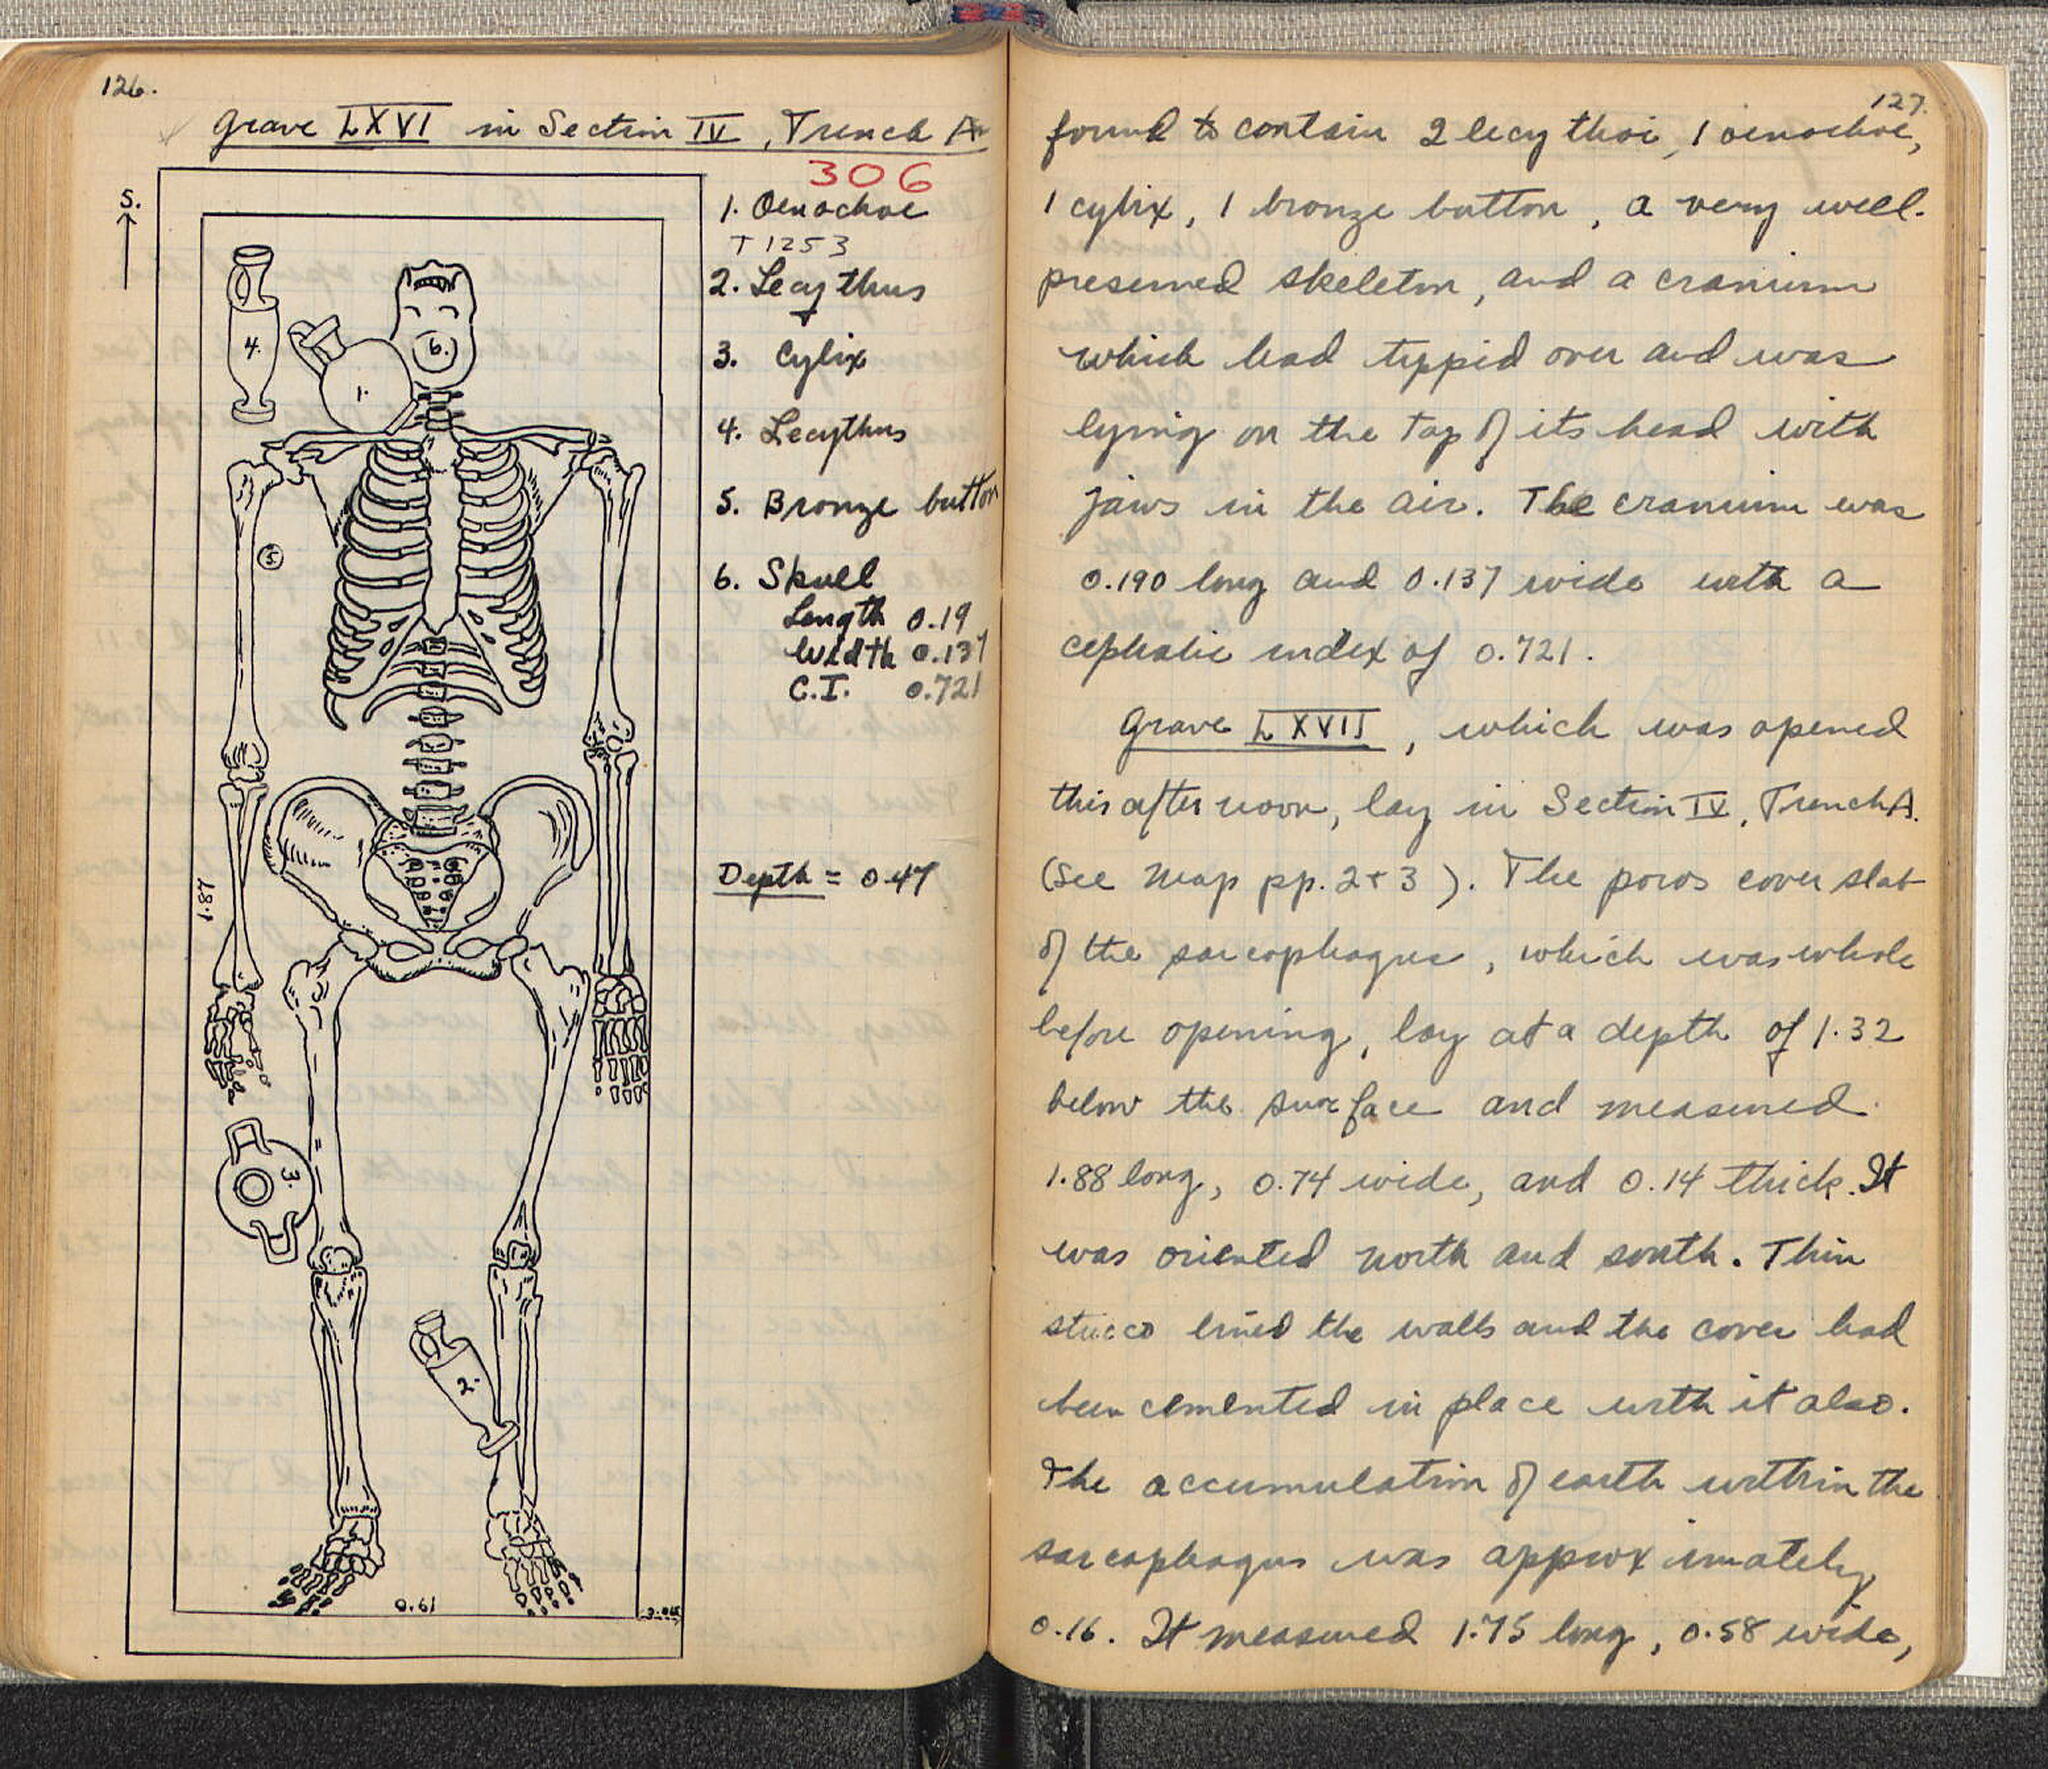 126.
Grave LXVI in Section IV, Trench A
306
S.
1. Oenochoe
T 1253
2. Lecythus
3. Cylix
4. Lecythus
5. Bronze button
6. Skull
Length 0.19
Width 0.137
C.I. 0.721
Depth = 0.47
4.
6.
1.
5
1.87
3.
2.
0.61
127.
found to contain 2 lecythoi, 1 oenochoe,
1 cylix, 1 bronze button, a very well-
preserved skeleton, and a cranium
which had tippid over and was
lying on the top of its head with
jaws in the air. The cranium was
0.190 long and 0.137 wide with a
cephalic index of 0.721.
Grave LXVII, which was opened
this afternoon, lay in Section IV, Trench A.
(See Map pp. 2+3). The poros cover slab
of the sarcophagus, which was whole
before opening, lay at a depth of 1.32
below the surface and measured
1.88 long, 0.74 wide, and 0.14 thick. It
was oriented north and south. Thin
stucco lined the walls and the cover had
been cemented in place with it also.
The accumulation of earth within the
sarcophagus was approximately
0.16. It measured 1.75 long, 0.58 wide,